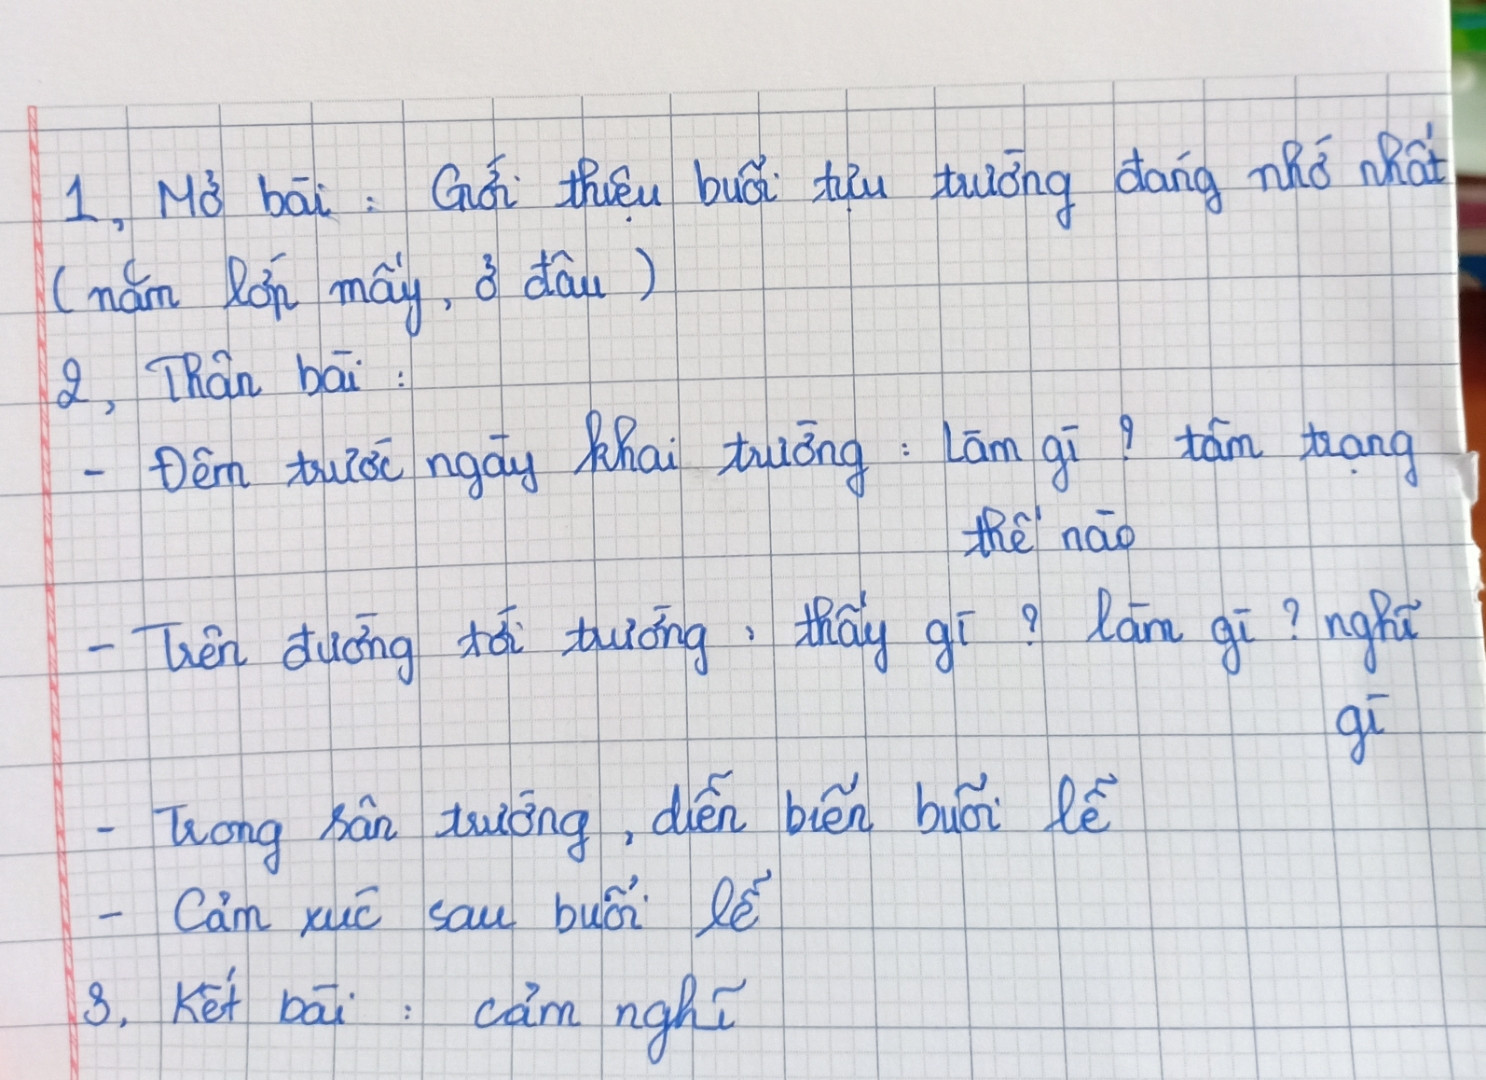 1, Mở bài : Giới thiệu buổi tựu trường đáng nhớ nhất
( năm lớp mấy, ở đâu )
2, Thân bài :
- Đêm trước ngày khai trường : Làm gì ? tâm trạng
thế nào
- Trên đường tới trường : thấy gì ? làm gì ? nghĩ
gì
- Trong sân trường, diễn biến buổi lễ
- Cảm xúc sau buổi lễ
3, Kết bài : cảm nghĩ